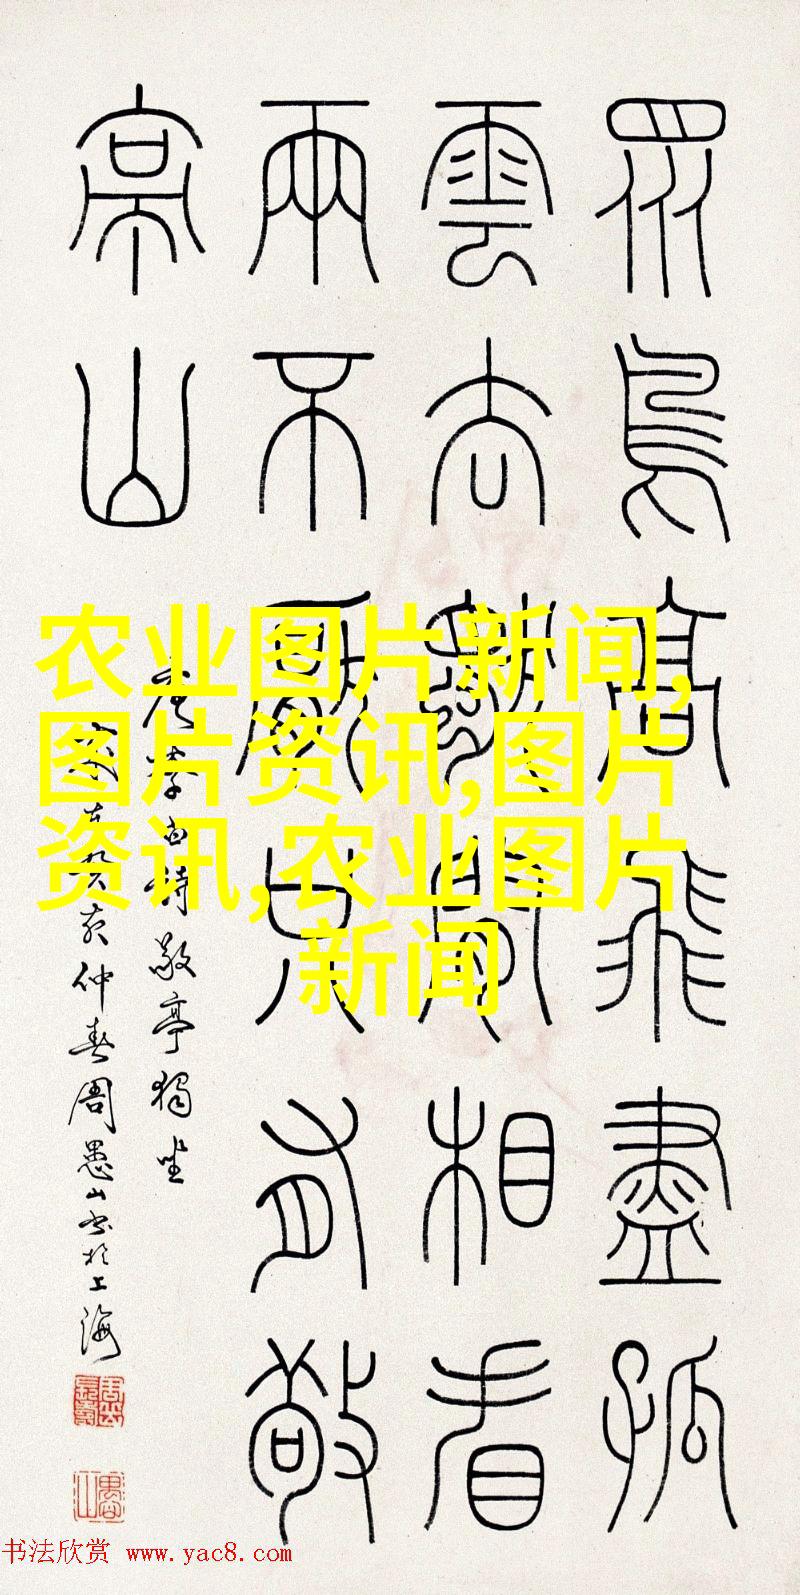 眾鳥高飛盡孤
雲去獨閒相看
兩不厭只有敬
亭山
唐李白詩敬亭獨坐
仲春周愚山書於上海
农业图片新闻,
图片资讯,图片
资讯,农业图片
新闻
书法欣赏 www.yac8.com